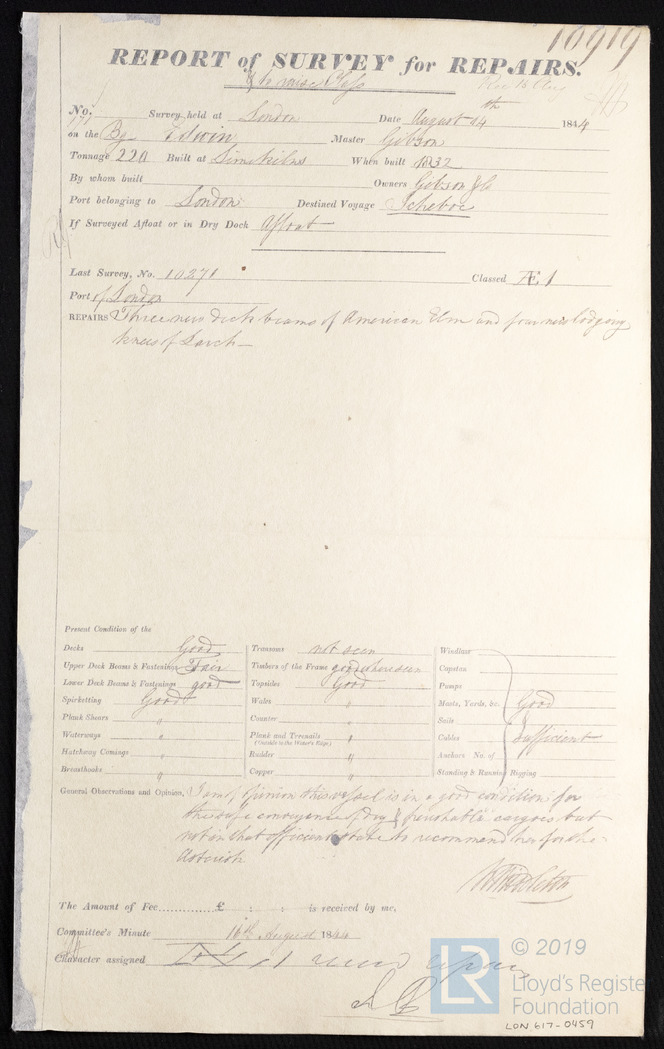 10919
REPORT of SURVEY for REPAIRS.
No. Survey held at London Date August 14th 1844
on the Bg Edwin Master Gibson
Tonnage 220 Built at Limekilns When built 1832
By whom built Owners Gibson & Co
Port belonging to London Destined Voyage
If Surveyed Afloat or in Dry Dock Afloat
Last Survey, No. 10271 Classed Æ 1
Port of London
REPAIRS Three new deck beams of American Elm and four new lodging
knees of Larch
Present Condition of the
Decks Good Transoms not seen Windlass
Upper Deck Beams & Fastenings Fair Timbers of the Frame good where seen Capstan
Lower Deck Beams & Fastenings good Topsides Good Pumps
Spirketting Good Wales " Masts, Yards, &c. Good
Plank Shears " Counter " Sails
Waterways " Plank and Treenails " Cables Sufficient
(Outside to the Water's Edge)
Hatchway Comings " Rudder " Anchors No. of
Breasthooks " Copper " Standing & Running Rigging
General Observations and Opinion, I am of Opinion this vessel is in a good condition for
the safe conveyance of Dry & perishable cargoes but
not in that efficient state to recommend her for the
Asterisk
The Amount of Fee............ £ : : is received by me,
Committee's Minute 16th August 1844
Character assigned
LR © 2019
Lloyd's Register
Foundation
LON 617-0459